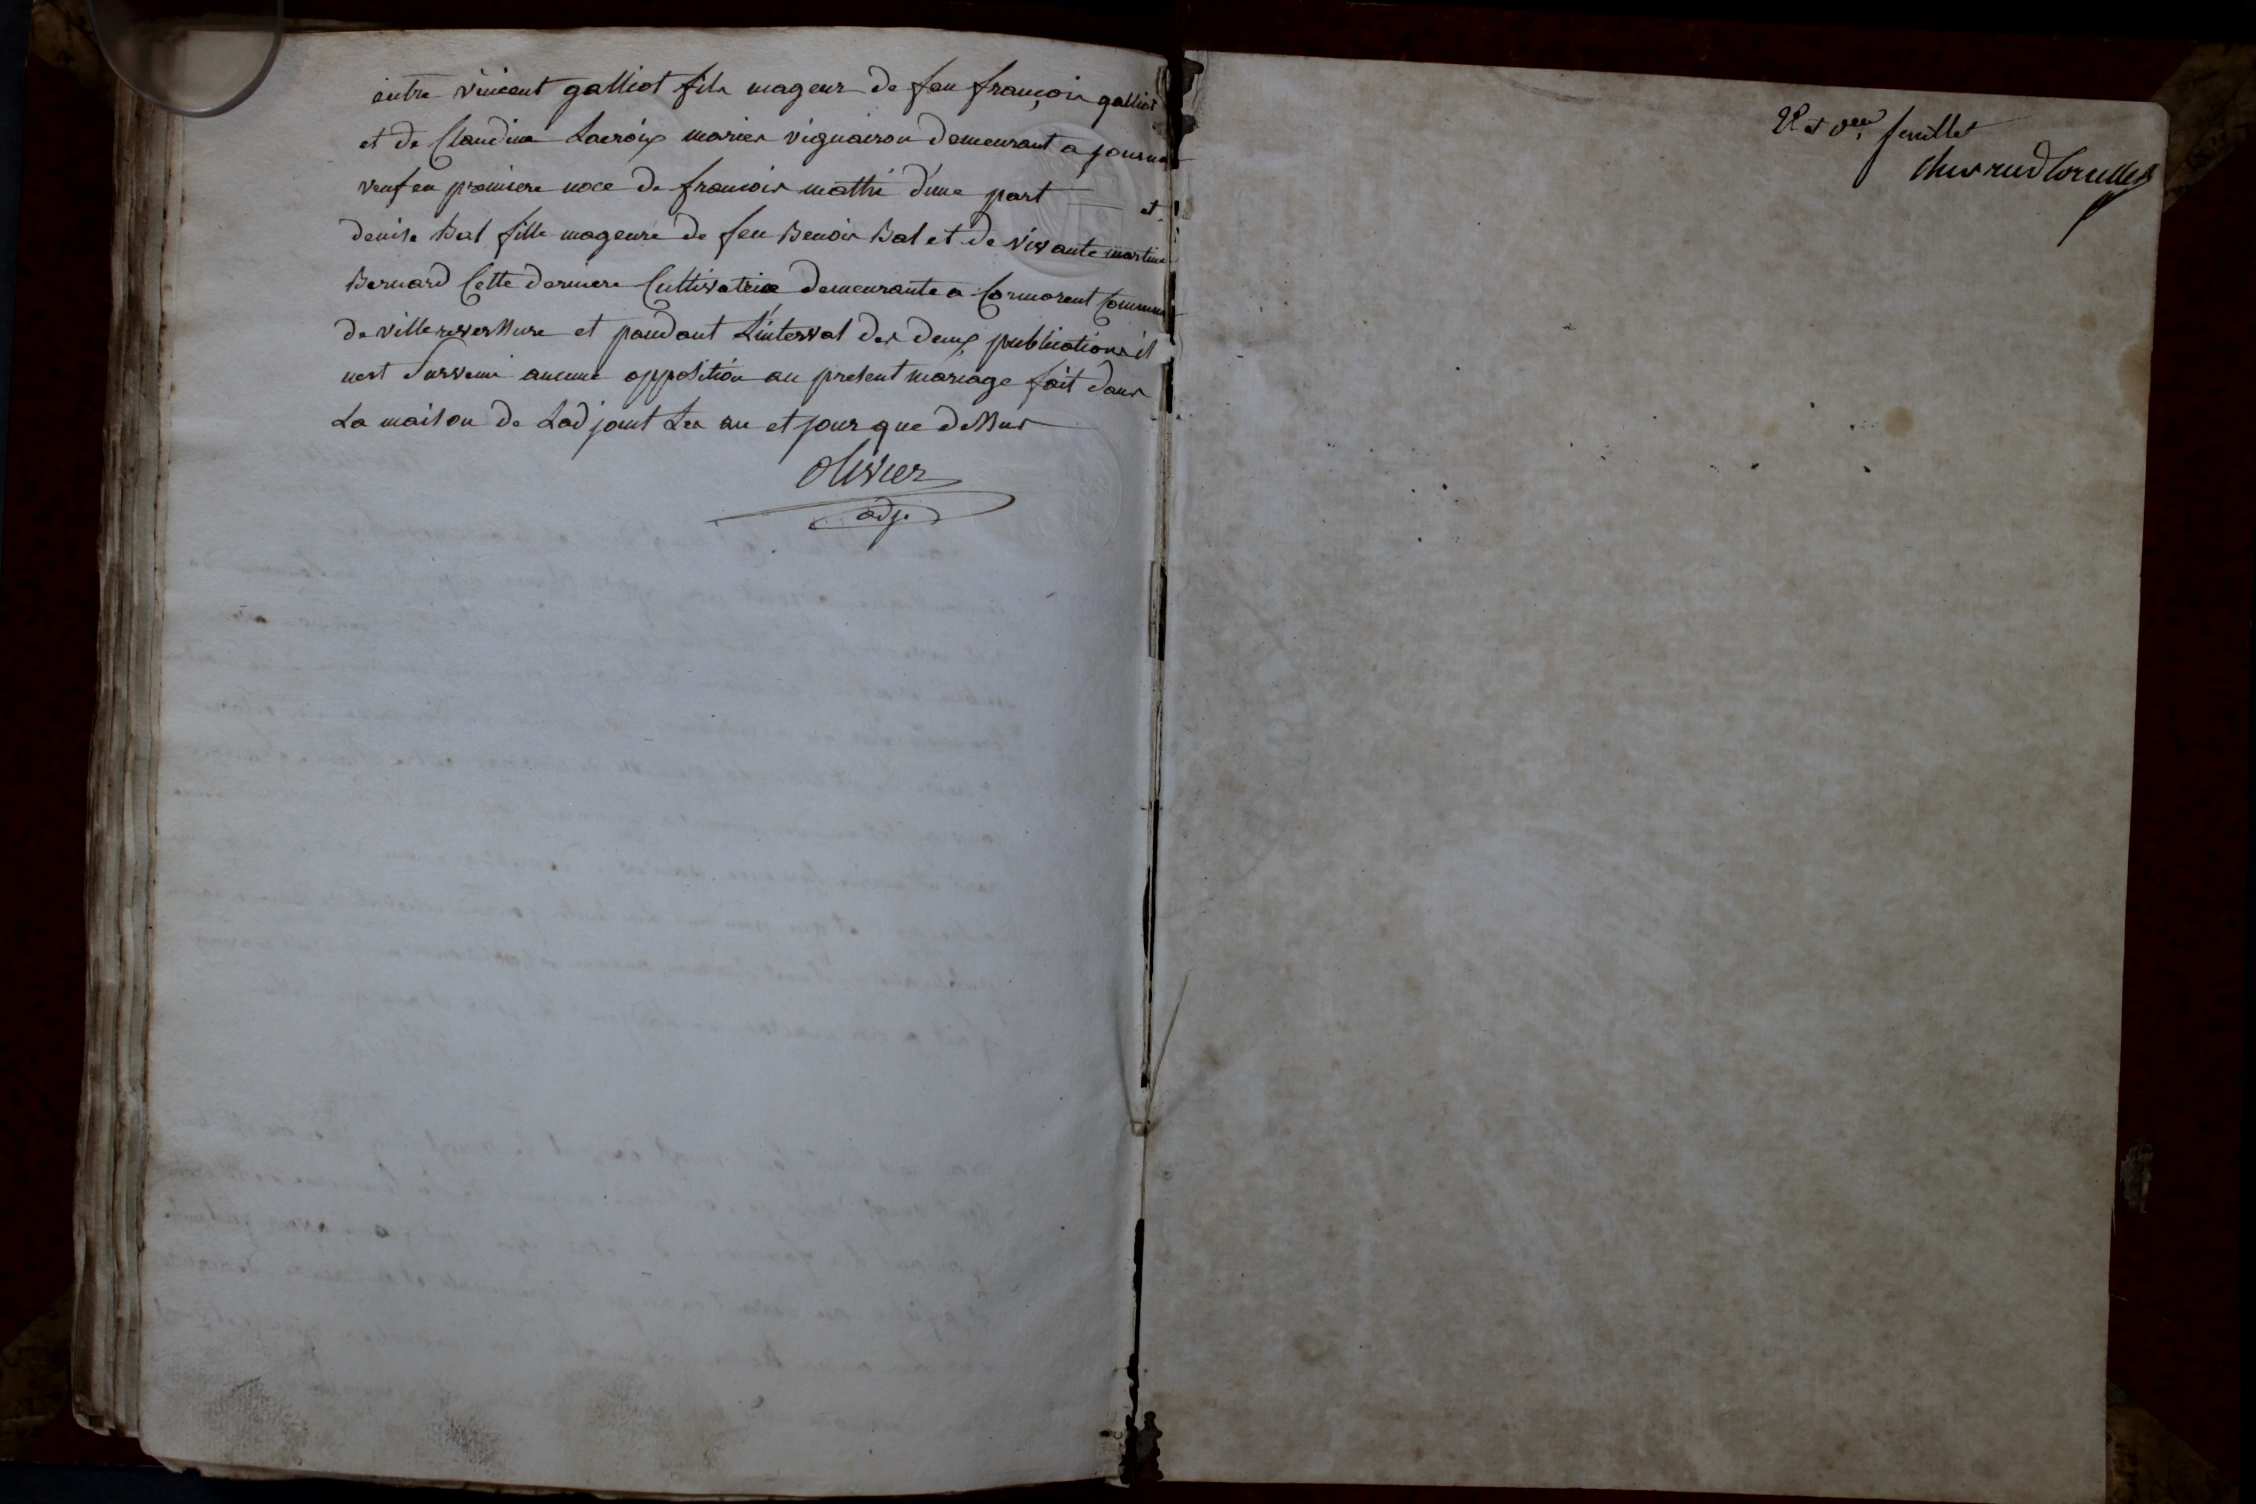 entre vincent galliot fils mageur de feu françois galliot
et de Claudine Lacroix mariés vignairon demeurant a journa
veuf en premiere noce de francois mathi d'une part et
denise Bal fille mageure de feu Benois Bal et de vivante martine
Bernard Cette derniere Cultivatrice demeurante a Cormorent Commune
de villereversure et pandant L'interval des deux publications il
nest Survenu aucune opposition au present mariage fait dans
La maison de Ladjoint Les an et jour que dessus
olivier
adj.
et feuillet